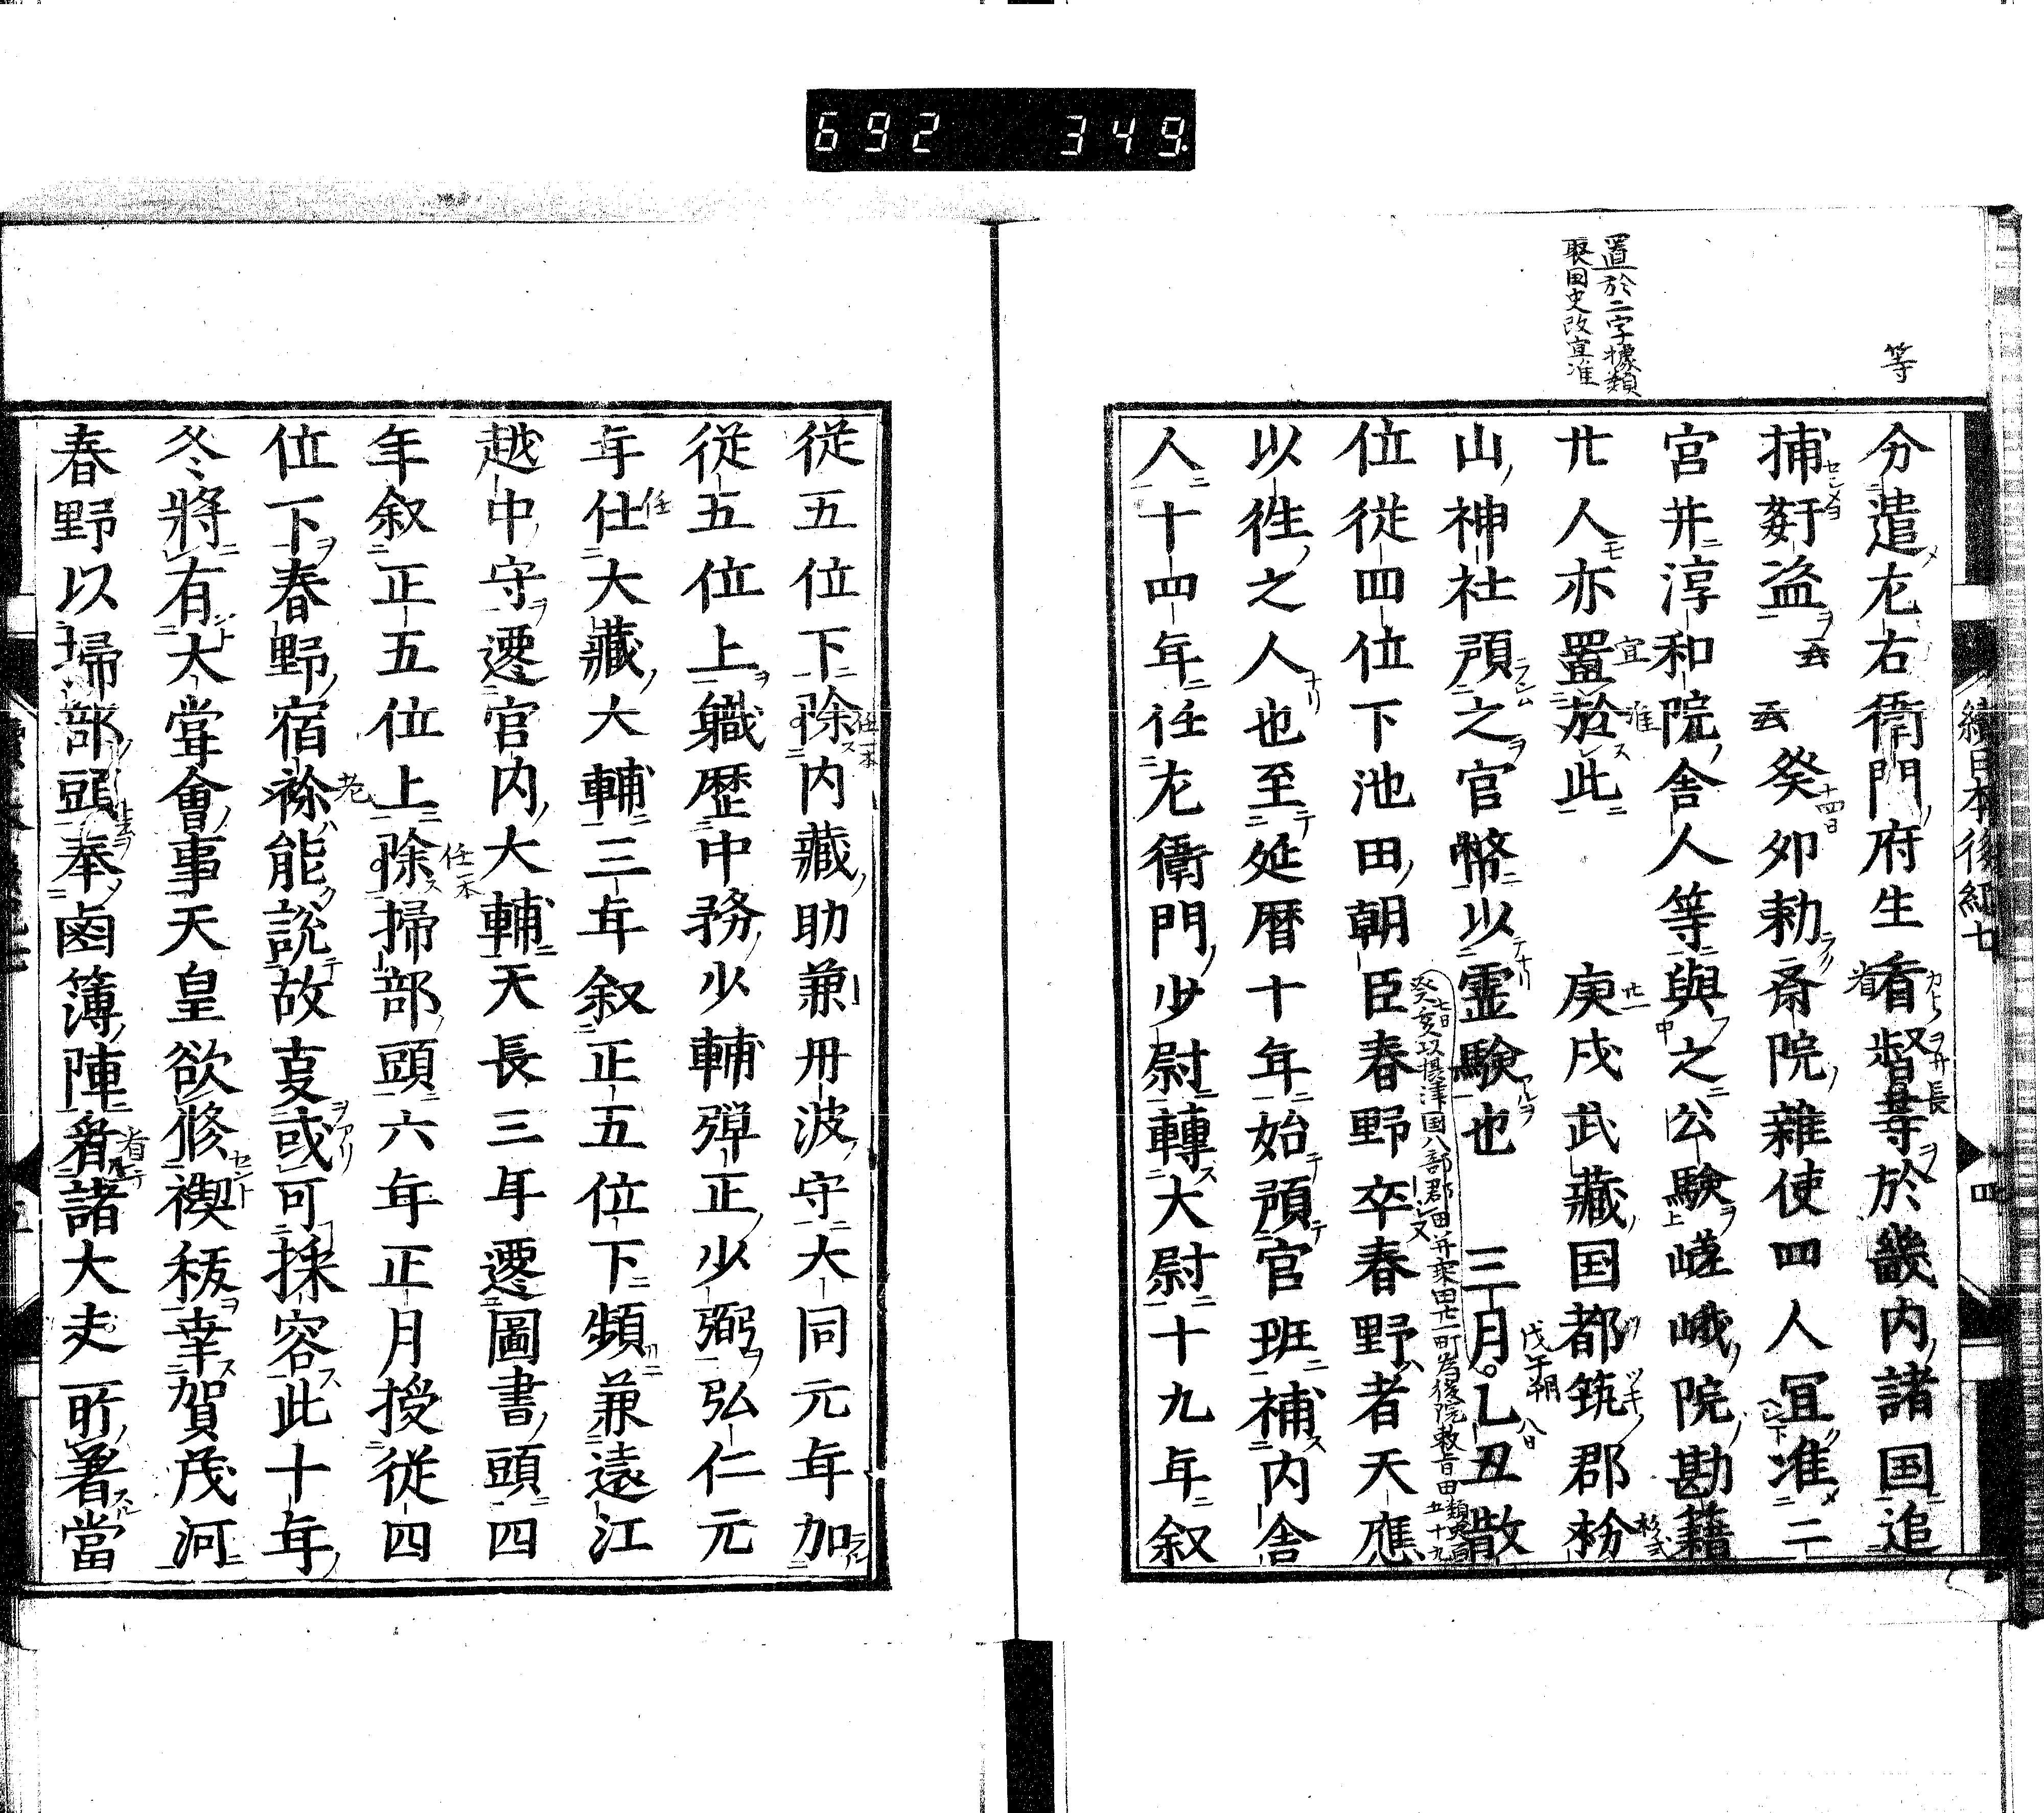 692 349
等
置於二字據類
聚国史改宜准
續日本後紀七
四
分遣左右衛門府生看督等於畿内諸国追
捕姧盗 癸夘勅斎院雜使四人冝准二
宮并淳和院舎人等與之公驗嵯峨院勘籍
廿人亦置於此 庚戌武藏国都筑郡枌
山神社預之官幣以霊驗也 三月乙丑散
位從四位下池田朝臣春野卒春野者天應
以徃之人也至延暦十年始預官班補内舎
人十四年任左衛門少尉轉大尉十九年叙
癸亥以摂津国八部郡田并乗田廿町為後院敕旨田
戊午朔
従五位下除内藏助兼丹波守大同元年加
従五位上軄歴中務少輔彈正少弼弘仁元
年仕大藏大輔三年叙正五位下頻兼遠江
越中守遷宮内大輔天長三年遷圖書頭四
年叙正五位上除掃部頭六年正月授従四
位下春野宿袮能説故事或可採容此十年
冬將有大甞會事天皇欲修禊秡幸賀茂河
春野以掃部頭奉鹵簿陣着諸大夫所著當